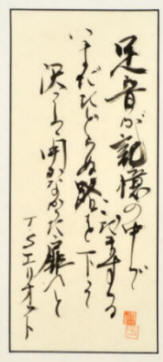 足音が記憶の中で
こだまする
いまだたどらぬ路を下って
決して開かなかった扉へと
TSエリオット